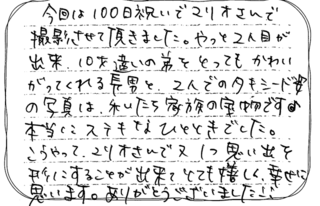 今回は100日祝いでマリオさんで
撮影させて頂きました。やっと2人目が
出来、10才違いの弟をとってもかわい
がってくれる長男と、2人でのタキシード姿
の写真は、私たち家族の宝物です♪
本当にステキなひとときでした。
こうやって、マリオさんで又1つ思い出を
形にすることが出来てとても嬉しく、幸せに
思います。ありがとうございました!!